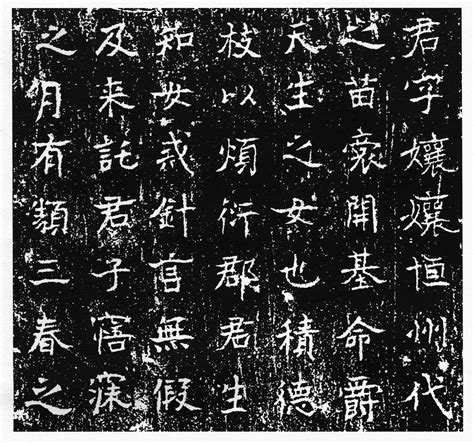 君字孃孃恒州代
之苗裔開基命爵
天生之女也積德
枝以煩衍郡君生
知女戒針官無假
及来託君子寤寐
之月有類三春之